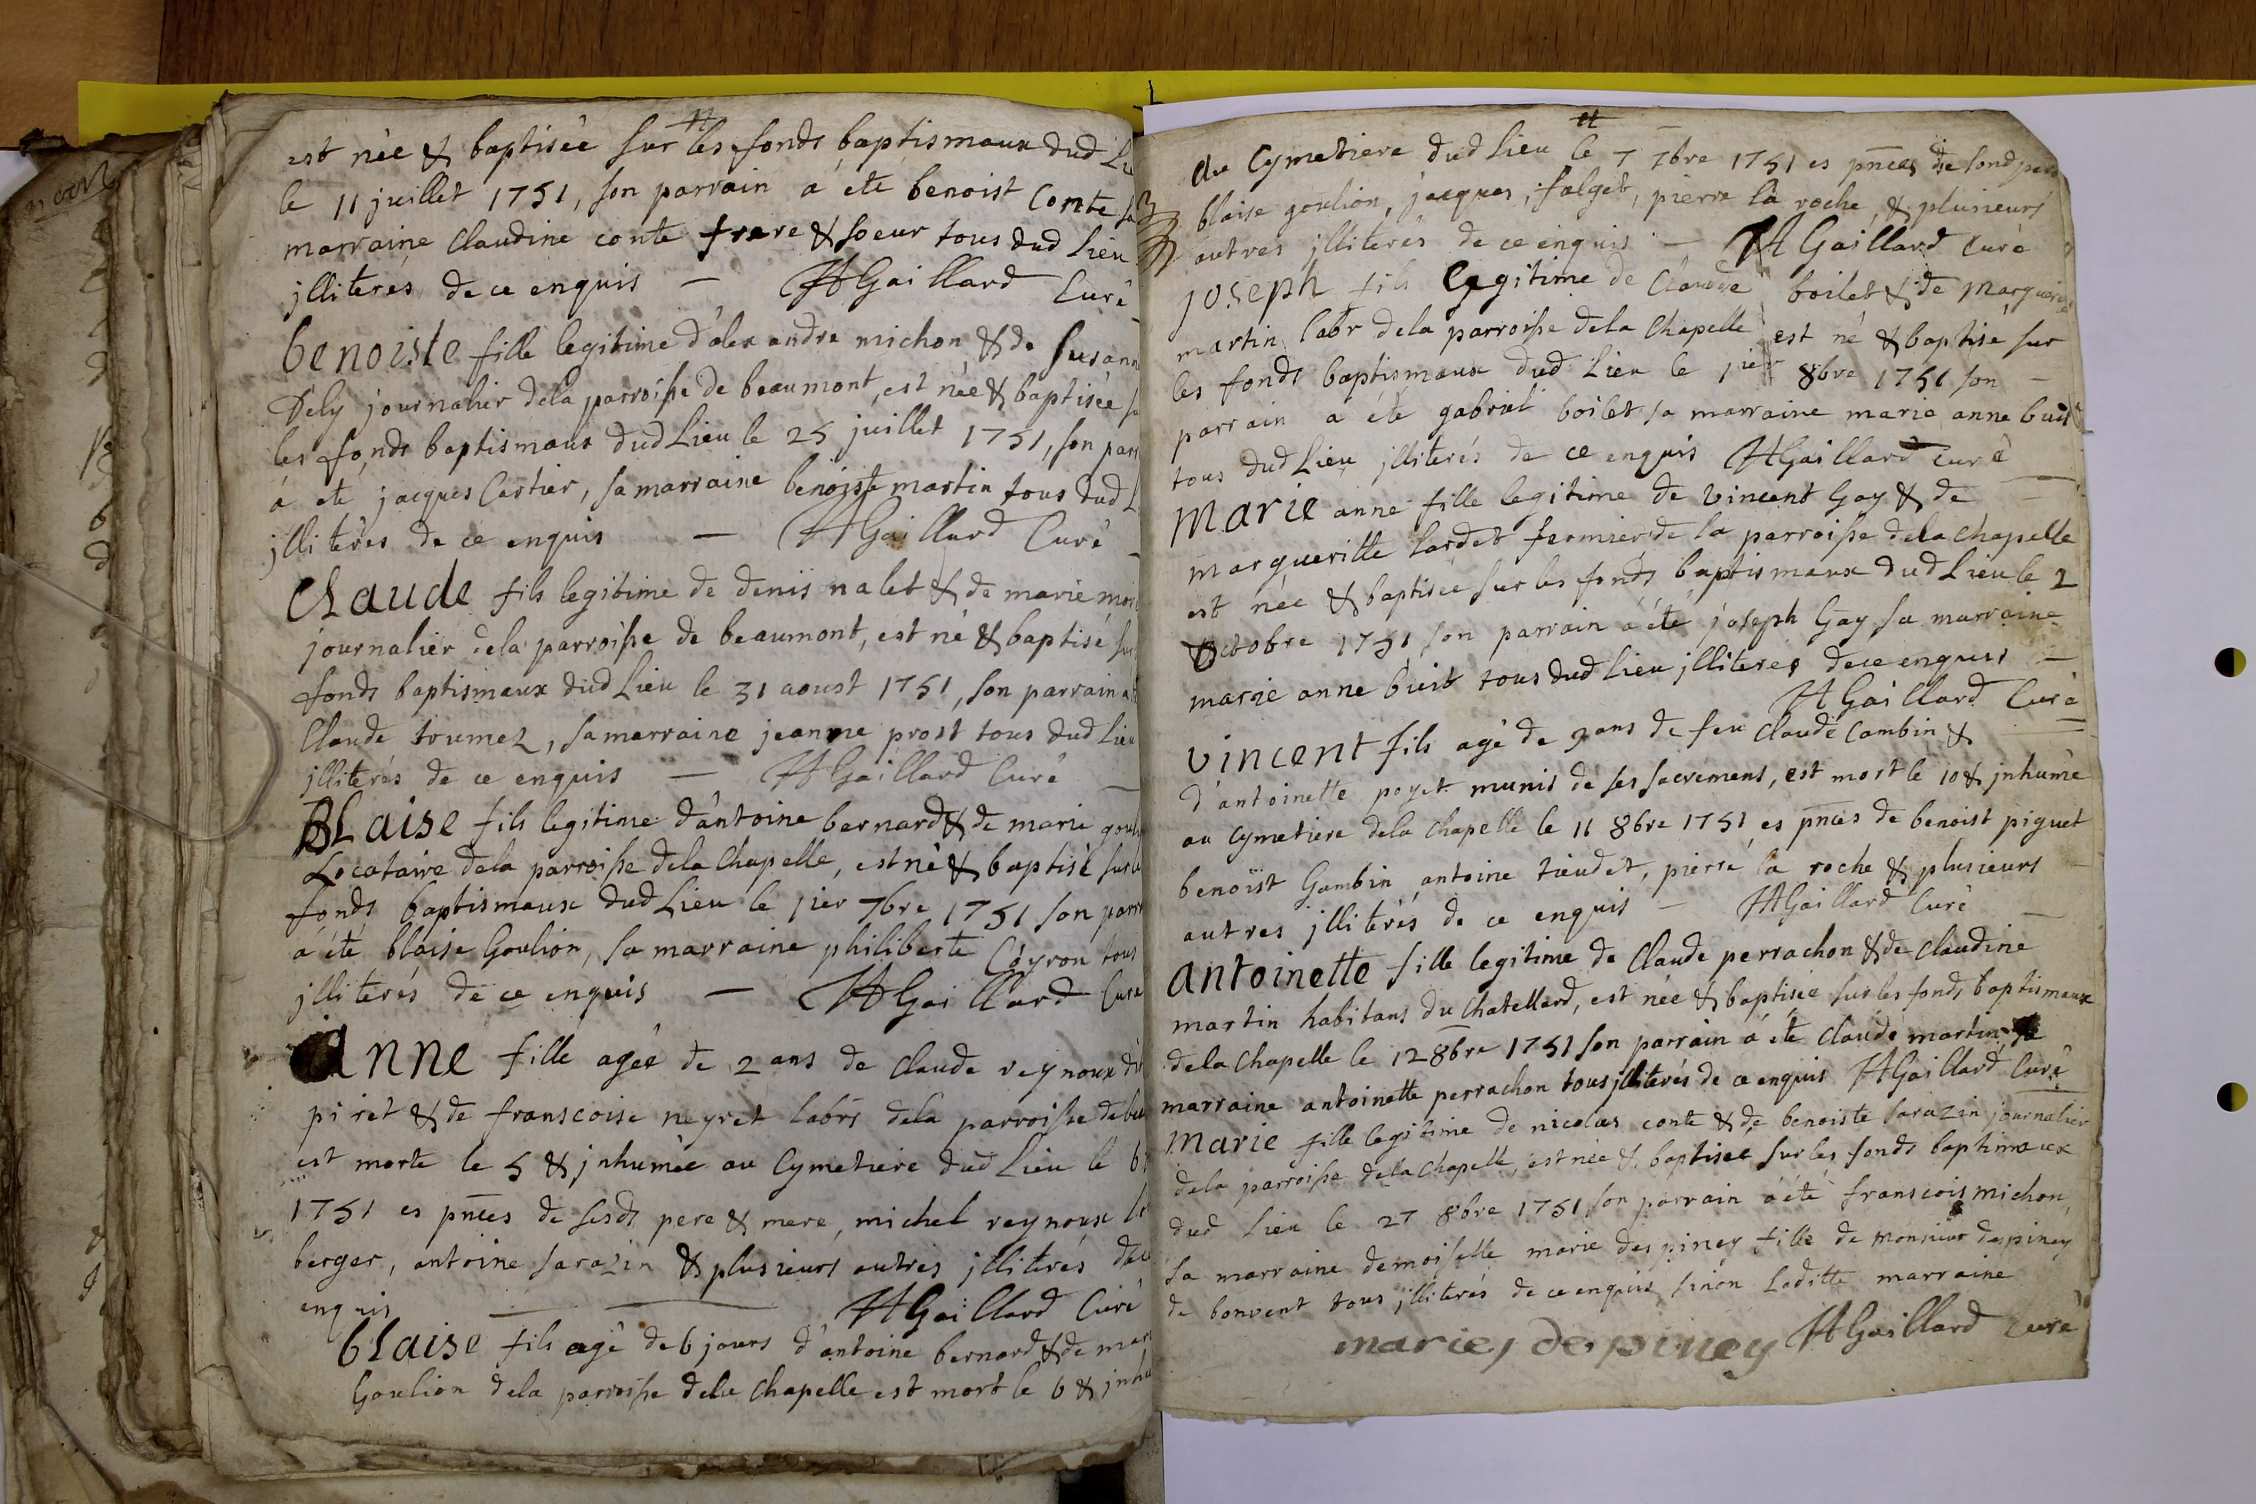 est nèe & baptisèe sur les fonds baptismaux dud Lieu
le 11 juillet 1751, son parrain à èté benoist Conte sa
marraine claudine conte frere & soeur tous dud Lieu
jlliterés de ce enquis — Gaillard Curè
benoiste fille legitime d'alexandre michon & de Susann
Dely journalier dela parroisse de beaumont, est née & baptisée su
les fonds baptismaux dud Lieu le 25 juillet 1751, son parr
à eté jacques Cartier, sa marraine benoiste martin tous dud L
jlliterés de ce enquis — Gaillard Curè
Claude fils legitime de denis nalet & de marie
journalier dela parroisse de beaumont, est né & baptisé sur
fonds baptismaux dud Lieu le 31 aoust 1751, son parrain a
Claude toumez, sa marraine jeanne prost tous dud Lieu
jlliterés de ce enquis — Gaillard Curè
BLaise fils legitime d'antoine bernard & de marie goul
Locataire dela parroisse dela Chapelle, est né & baptisé sur
fonds baptismaux dud Lieu le 1ier 7bre 1751 son parr
à été blaise Goulion, sa marraine philiberte Coyron tous
jlliterés de ce enquis — Gaillard Cure
Anne fille agée de 2 ans de Claude reynoux
piret & de franscoise neyret labrs dela parroisse de be
est morte le 5 & jnhumée au Cymetiere dud Lieu le 6
1751 es pnces de sesds pere & mere, michel reynoux
berger, antoine sarazin & plusieurs autres jlliterés de ce
enquis — Gaillard Curé
bLaise fils agé de 6 jours d'antoine bernard & de mar
Goulion dela parroisse dela Chapelle est mort le 6 & jnhu
au Cymetiere dud Lieu le 7 7bre 1751 es pnces de sond pere
blaise goulion, jacques falget, pierre la roche, & plusieurs
autres jlliterés de ce enquis — Gaillard Curè
joseph fils legitime de Claude boilet & de marguerite
martin labr dela parroisse dela Chapelle est né & baptisé sur
les fonds baptismaux dud Lieu le 1ier 8bre 1751 son —
parrain a été gabriel boilet sa marraine marie anne buis
tous dud Lieu jlliterés de ce enquis Gaillard Curè
Marie anne fille legitime de vincent Gay & de
marguerilte lardet fermier de la parroisse dela Chapelle
est née & baptisée sur les fonds baptismaux dud Lieu le 2
Octobre 1751 son parrain à été joseph Gay sa marraine
marie anne buit tous dud Lieu jlliterés de ce enquis —
Gaillard Curè
vincent fils agé de 9 ans de feu Claude Cambin &
d'antoinette poyet munis de ses sacremens, est mort le 10 & jnhumé
au Cymetiere dela Chapelle le 11 8bre 1751 es pnces de benoist piguet
benoist Gambin antoine tieudet, pierre la roche & plusieurs
autres jlliterés de ce enquis — Gaillard Curè
antoinette fille legitime de Claude perrachon & de Claudine
martin habitans du Chatellard, est née & baptisée sur les fonds baptismaux
dela Chapelle le 12 8bre 1751 son parrain à été Claude martin, sa
marraine antoinette perrachon tous jlliterés de ce enquis Gaillard Curè
Marie fille legitime de nicolas conte & de benoiste sarazin journalier
dela parroisse dela Chapelle, est née & baptisée sur les fonds baptimaux
dud Lieu le 27 8bre 1751 son parrain à été franscois michon,
sa marraine demoiselle marie despiney fille de monsieur despiney
de bonvent tous jlliterés de ce enquis sinon laditte marraine
marie despiney Gaillard Curè